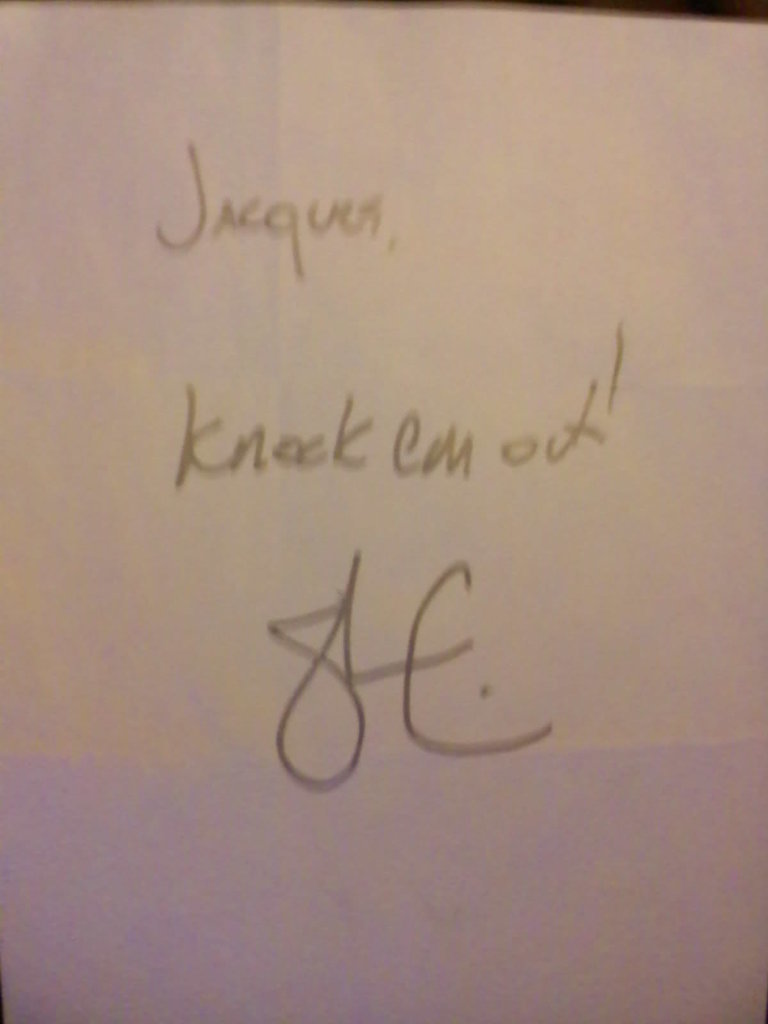 Jacques,
Knock em out!